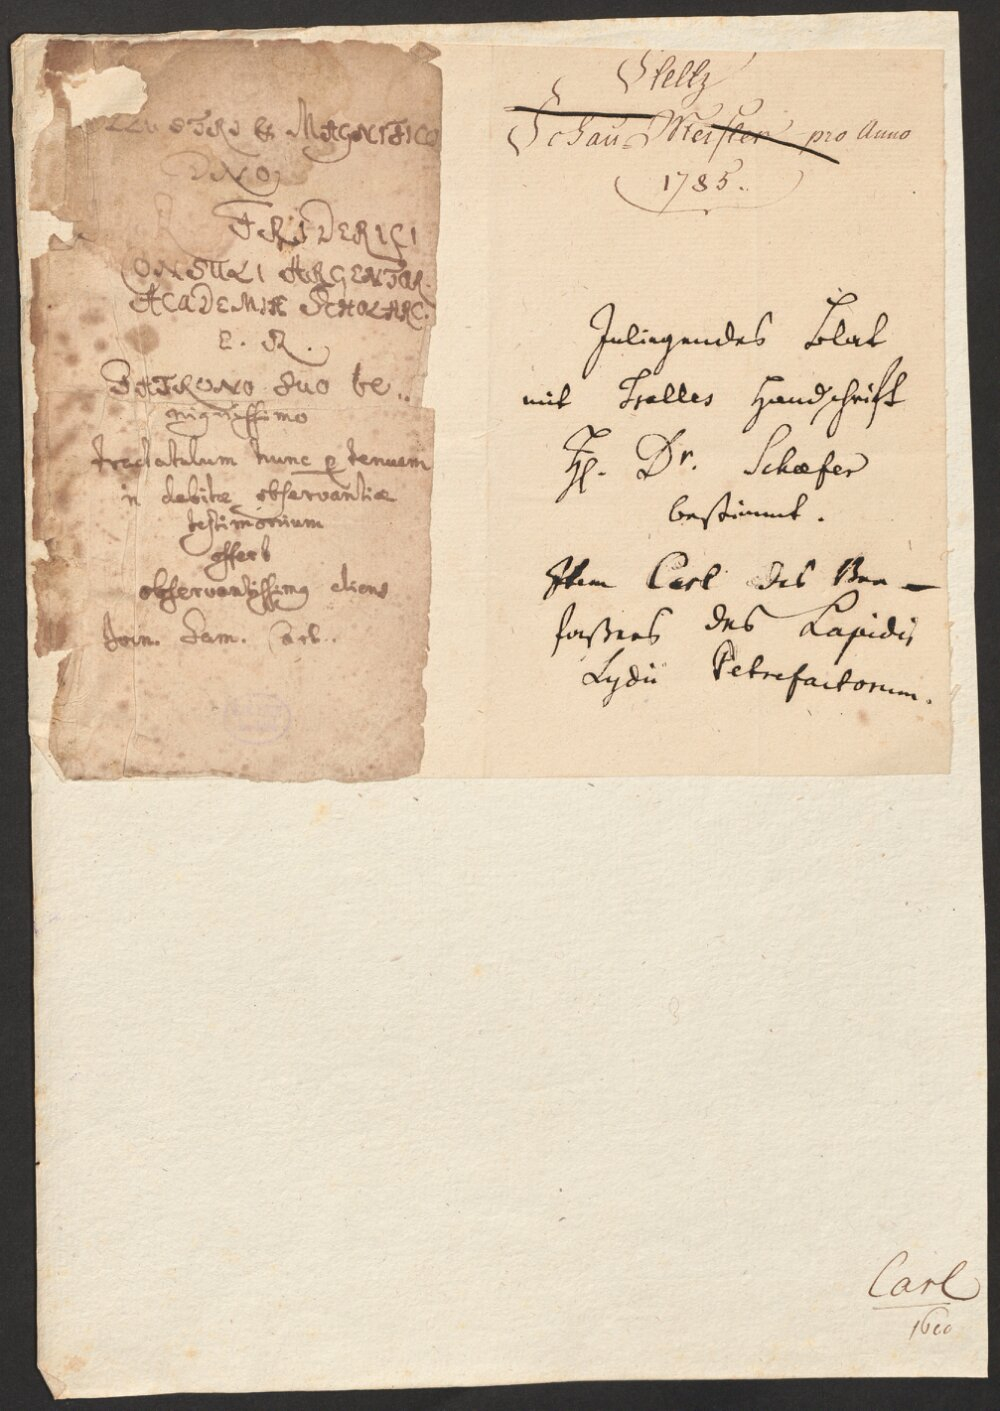 LLUSTRI & MAGNIFICO
DNO
FRIDERICI
CONSULI ARGENTOR.
ACADEMIÆ SCHOLARC.
PATRONO suo be..
nignissimo
tractatulum hunc p tenuem
in debitæ observantiæ
testimonium
offert
observantissimg cliens
Join. Sam. Carl..
Steltz
Schau-Meister pro Anno
1785.
Inliegendes Blat
mit Tralles Handschrift
H. Dr. Schæfer
bestimmt.
Item Carl des Ver-
faßers des Lapidis
Lydii Petrefactorum.
Carl